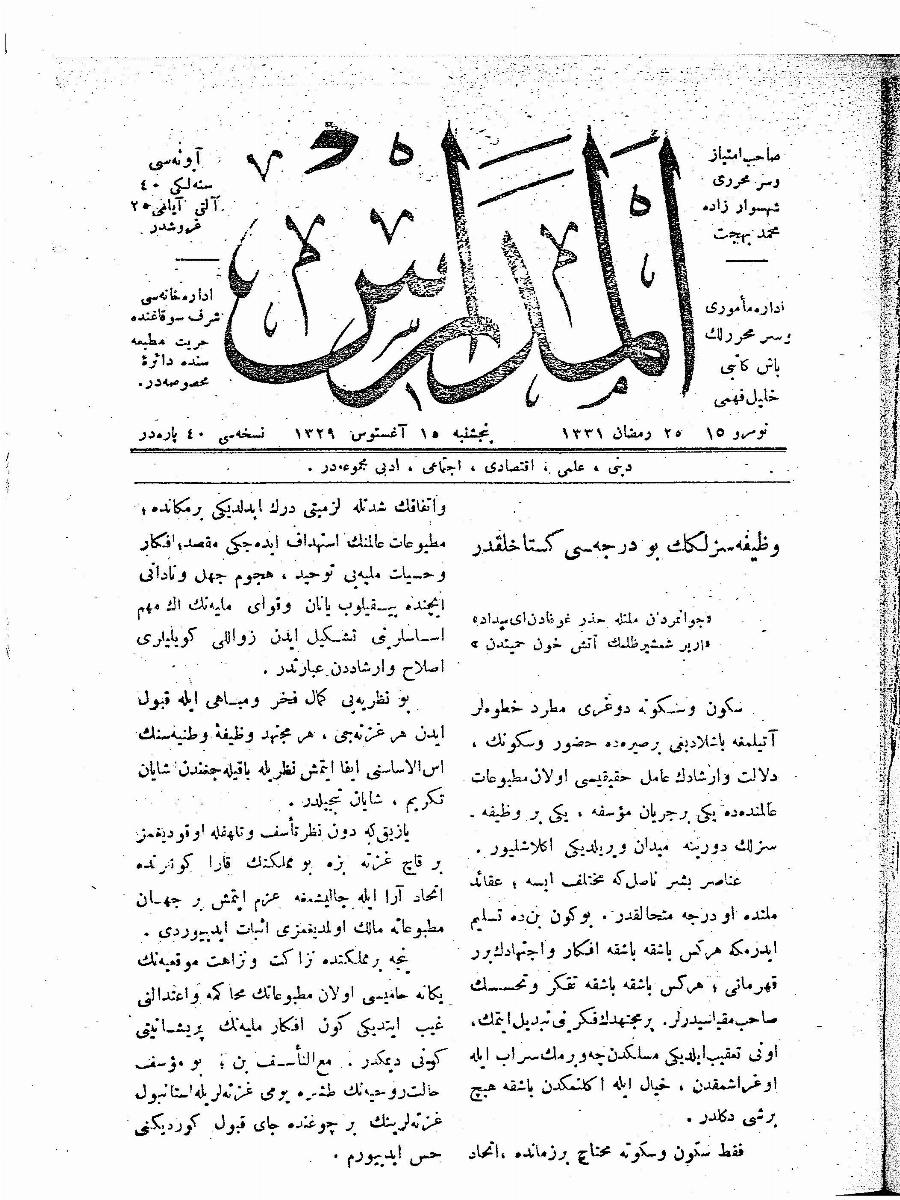 صاحب امتیاز
و سر محرری
شهسوار زاده
محمد بهجت
اداره مأموری
و سر محررلك
باش كاتبی
خلیل فهمی
المدارس
آبونه‌سی
سنه‌لكی ٤٠
آلتی آیلغی ٢٥
غروشدر
اداره‌خانه‌سی
شرف سوقاغنده
حریت مطبعه
سنده دائرهٔ
مخصوصه‌در.
نومرو ١٥ ٢٥ رمضان ١٣٣١ پنجشنبه ١٥ آغستوس ١٣٢٩ نسخه‌سی ٤٠ پاره‌در
دینی ، علمی ، اقتصادی ، اجتماعی ، ادبی مجموعه‌در .
وظیفه‌سزلكك بو درجه‌سی كستاخلقدر
«جوانمردان ملتله حذر غوغادن ای بیداد»
«اریر شمشیر ظلمك آتش خون حمیتدن»
سكون و سكوته دوغری مطرد خطوه‌لر
آتیلمغه باشلادیغی بر صیره‌ده حضور و سكونك ،
دلالت و ارشادك عامل حقیقیسی اولان مطبوعات
عالمنده‌ده یكی بر جریان مؤسفه ، یكی بر وظیفه ـ
سزلك دورینه میدان ویریلدیكی اكلاشلیور .
عناصر بشر ناصل كه مختلف ایسه ؛ عقائد
ملتده او درجه متخالفدر . بوكون بن‌ده تسلیم
ایدرمكه هركس باشقه باشقه افكار و اجتهادك بر
قهرمانی ؛ هركس باشقه باشقه تفكر و تحسسك
صاحب مقیاسیدرلر. بر مجتهدك فكرینی تبدیل ایتمك،
اونی تعقیب ایلدیكی مسلكدن چویرمك سراب ایله
اوغراشمقدن ، خیال ایله اكلنمكدن باشقه هیچ
بر شی دكلدر .
فقط سكون و سكوته محتاج بر زمانده ، اتحاد
و اتفاقك شدتله لزومیتی درك ایدلدیكی بر مكانده ؛
مطبوعات عالمنك استهداف ایده‌جكی مقصد؛ افكار
و حسیات ملیه‌یی توحید ، هجوم جهل و نادانی
ایچنده ییقیلوب یانان و قوای ملیه‌نك اك مهم
اساسلرینی تشكیل ایدن زواللی كویلیلری
اصلاح و ارشاددن عبارتدر .
بو نظریه‌یی كمال فخر و مباهی ایله قبول
ایدن هر غزته‌جی ، هر مجتهد وظیفهٔ وطنیه‌سنك
اس الاساسنی ایفا ایتمش نظریله باقیله‌جغندن شایان
تكریم ، شایان تبجیلدر .
یازیق كه دون نظر تأسف و تلهفله اوقودیغمز
بر قاچ غزته بزه بو مملكتك قارا كونلرنده
اتحاد آرا ایله چالیشمغه عزم ایتمش بر جهان
مطبوعاته مالك اولمدیغمزی اثبات ایدییوردی .
نیجه بر مملكتده نزاكت و نزاهت موقعیه‌نك
یكانه حامیسی اولان مطبوعاتك محاكمه و اعتدالنی
غیب ایتدیكی كون افكار ملیه‌نك پریشانیتی
كونی دیمكدر . مع التأسف بن ؛ بو مؤسف
حالت روحیه‌نك طشره یومی غزته‌لریله استانبول
غزته‌لرینك بر چوغنده جای قبول كوردیكنی
حس ایدییورم .